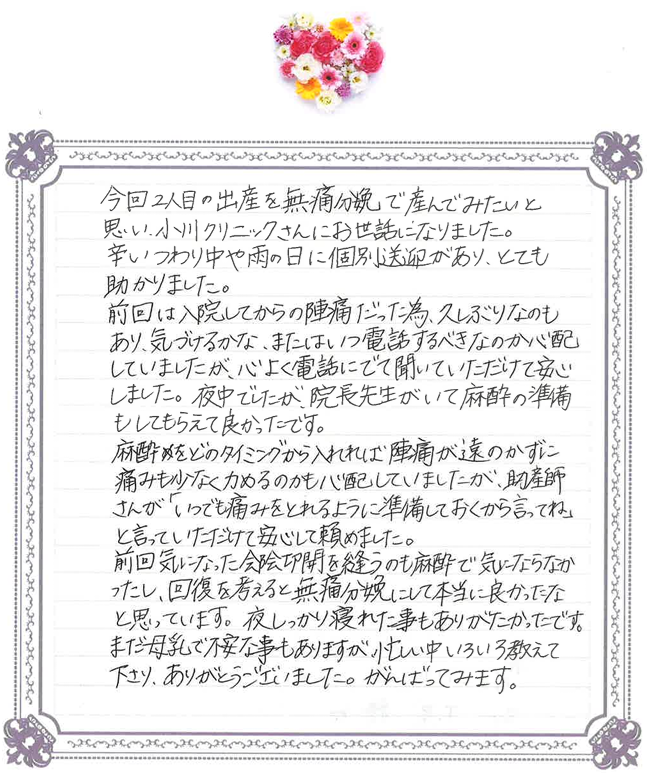 今回2人目の出産を無痛分娩で産んでみたいと
思い、小川クリニックさんにお世話になりました。
辛いつわり中や雨の日に個別送迎があり、とても
助かりました。
前回は入院してからの陣痛だった為、久しぶりなのも
あり、気づけるかな、またはいつ電話するべきなのか心配
していましたが、心よく電話にでて聞いていただけて安心
しました。夜中でしたが、院長先生がいて麻酔の準備
もしてもらえて良かったです。
麻酔をどのタイミングから入れれば陣痛が遠のかずに
痛みも少なく力めるのかも心配していましたが、助産師
さんが「いつでも痛みをとれるように準備しておくから言ってね」
と言っていただけて安心して頼めました。
前回気になった会陰切開を縫うのも麻酔で気にならなか
ったし、回復を考えると無痛分娩にして本当に良かったな
と思っています。夜しっかり寝れた事もありがたかったです。
まだ母乳で不安な事もありますが、忙しい中いろいろ教えて
下さり、ありがとうございました。がんばってみます。